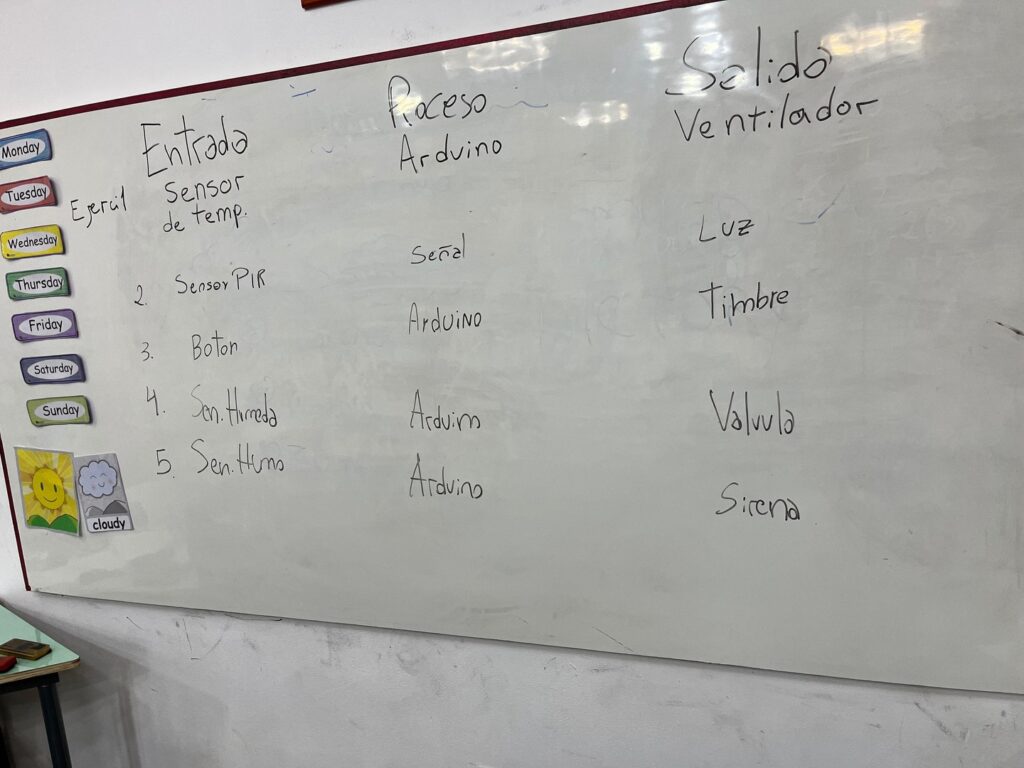 Entrada Proceso Salida
Monday
Sensor de temp. Arduino Ventilador
Tuesday
Ejerci1
Wednesday
Thursday
2. Sensor PIR Señal Luz
Friday
3. Boton Arduino Timbre
Saturday
4. Sen. Humeda Arduino Valvula
Sunday
5. Sen. Humo Arduino Sirena
cloudy